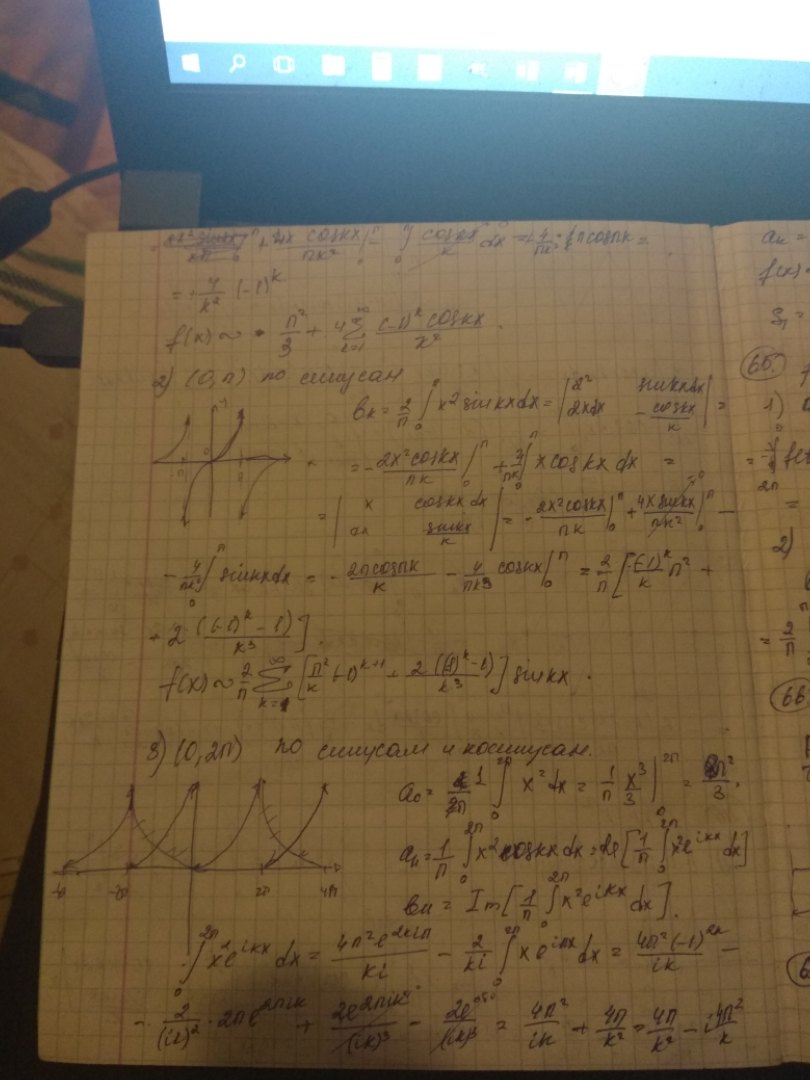 = + 4x cos kx / πk² |₀^π − ∫₀ cos kx / k dx = + 4/πk² · π cos πk =
= 4/k² (-1)^k
f(x) ~ π²/3 + 4 ∑_{k=1}^∞ (-1)^k cos kx / x² .
2) (0, π) по синусам
b_k = 2/π ∫₀^π x² sin kx dx = | x² sin kx dx
2x dx − cos kx / k | =
= − 2x² cos kx / πk |₀^π + 4/πk ∫₀^π x cos kx dx =
= | x cos kx dx
dx sin kx / k | = − 2x² cos kx / πk |₀^π + 4x sin kx / πk² |₀^π −
− 4/πk² ∫₀^π sin kx dx = − 2π cos πk / k − 4/πk³ cos kx |₀^π = 2/π [ −(-1)^k / k π² +
+ 2 ((-1)^k − 1) / k³ ] .
f(x) ~ 2/π ∑_{k=1}^∞ [ π²/k (-1)^{k+1} + 2 ((-1)^k − 1) / k³ ] sin kx .
3) (0, 2π) по синусам и косинусам.
a₀ = 1/π ∫₀^{2π} x² dx = 1/π x³/3 |₀^{2π} = 8π²/3 .
a_k = 1/π ∫₀^{2π} x² cos kx dx = Re [ 1/π ∫₀^{2π} x² e^{ikx} dx ]
b_k = Im [ 1/π ∫₀^{2π} x² e^{ikx} dx ] .
2π 4π
∫₀^{2π} x² e^{ikx} dx = 4π² e^{2kiπ} / ki − 2/ki ∫₀^{2π} x e^{ikx} dx = 4π² (-1)^{2k} / ik −
− 2/(ik)² · 2π e^{2πik} + 2e^{2πik} / (ik)³ − 2e⁰ / (ik)³ = 4π²/ik + 4π/k² = 4π/k² − i 4π²/k
a_k =
f(x)
S₁ =
65.
1)
2)
= 2/π
66